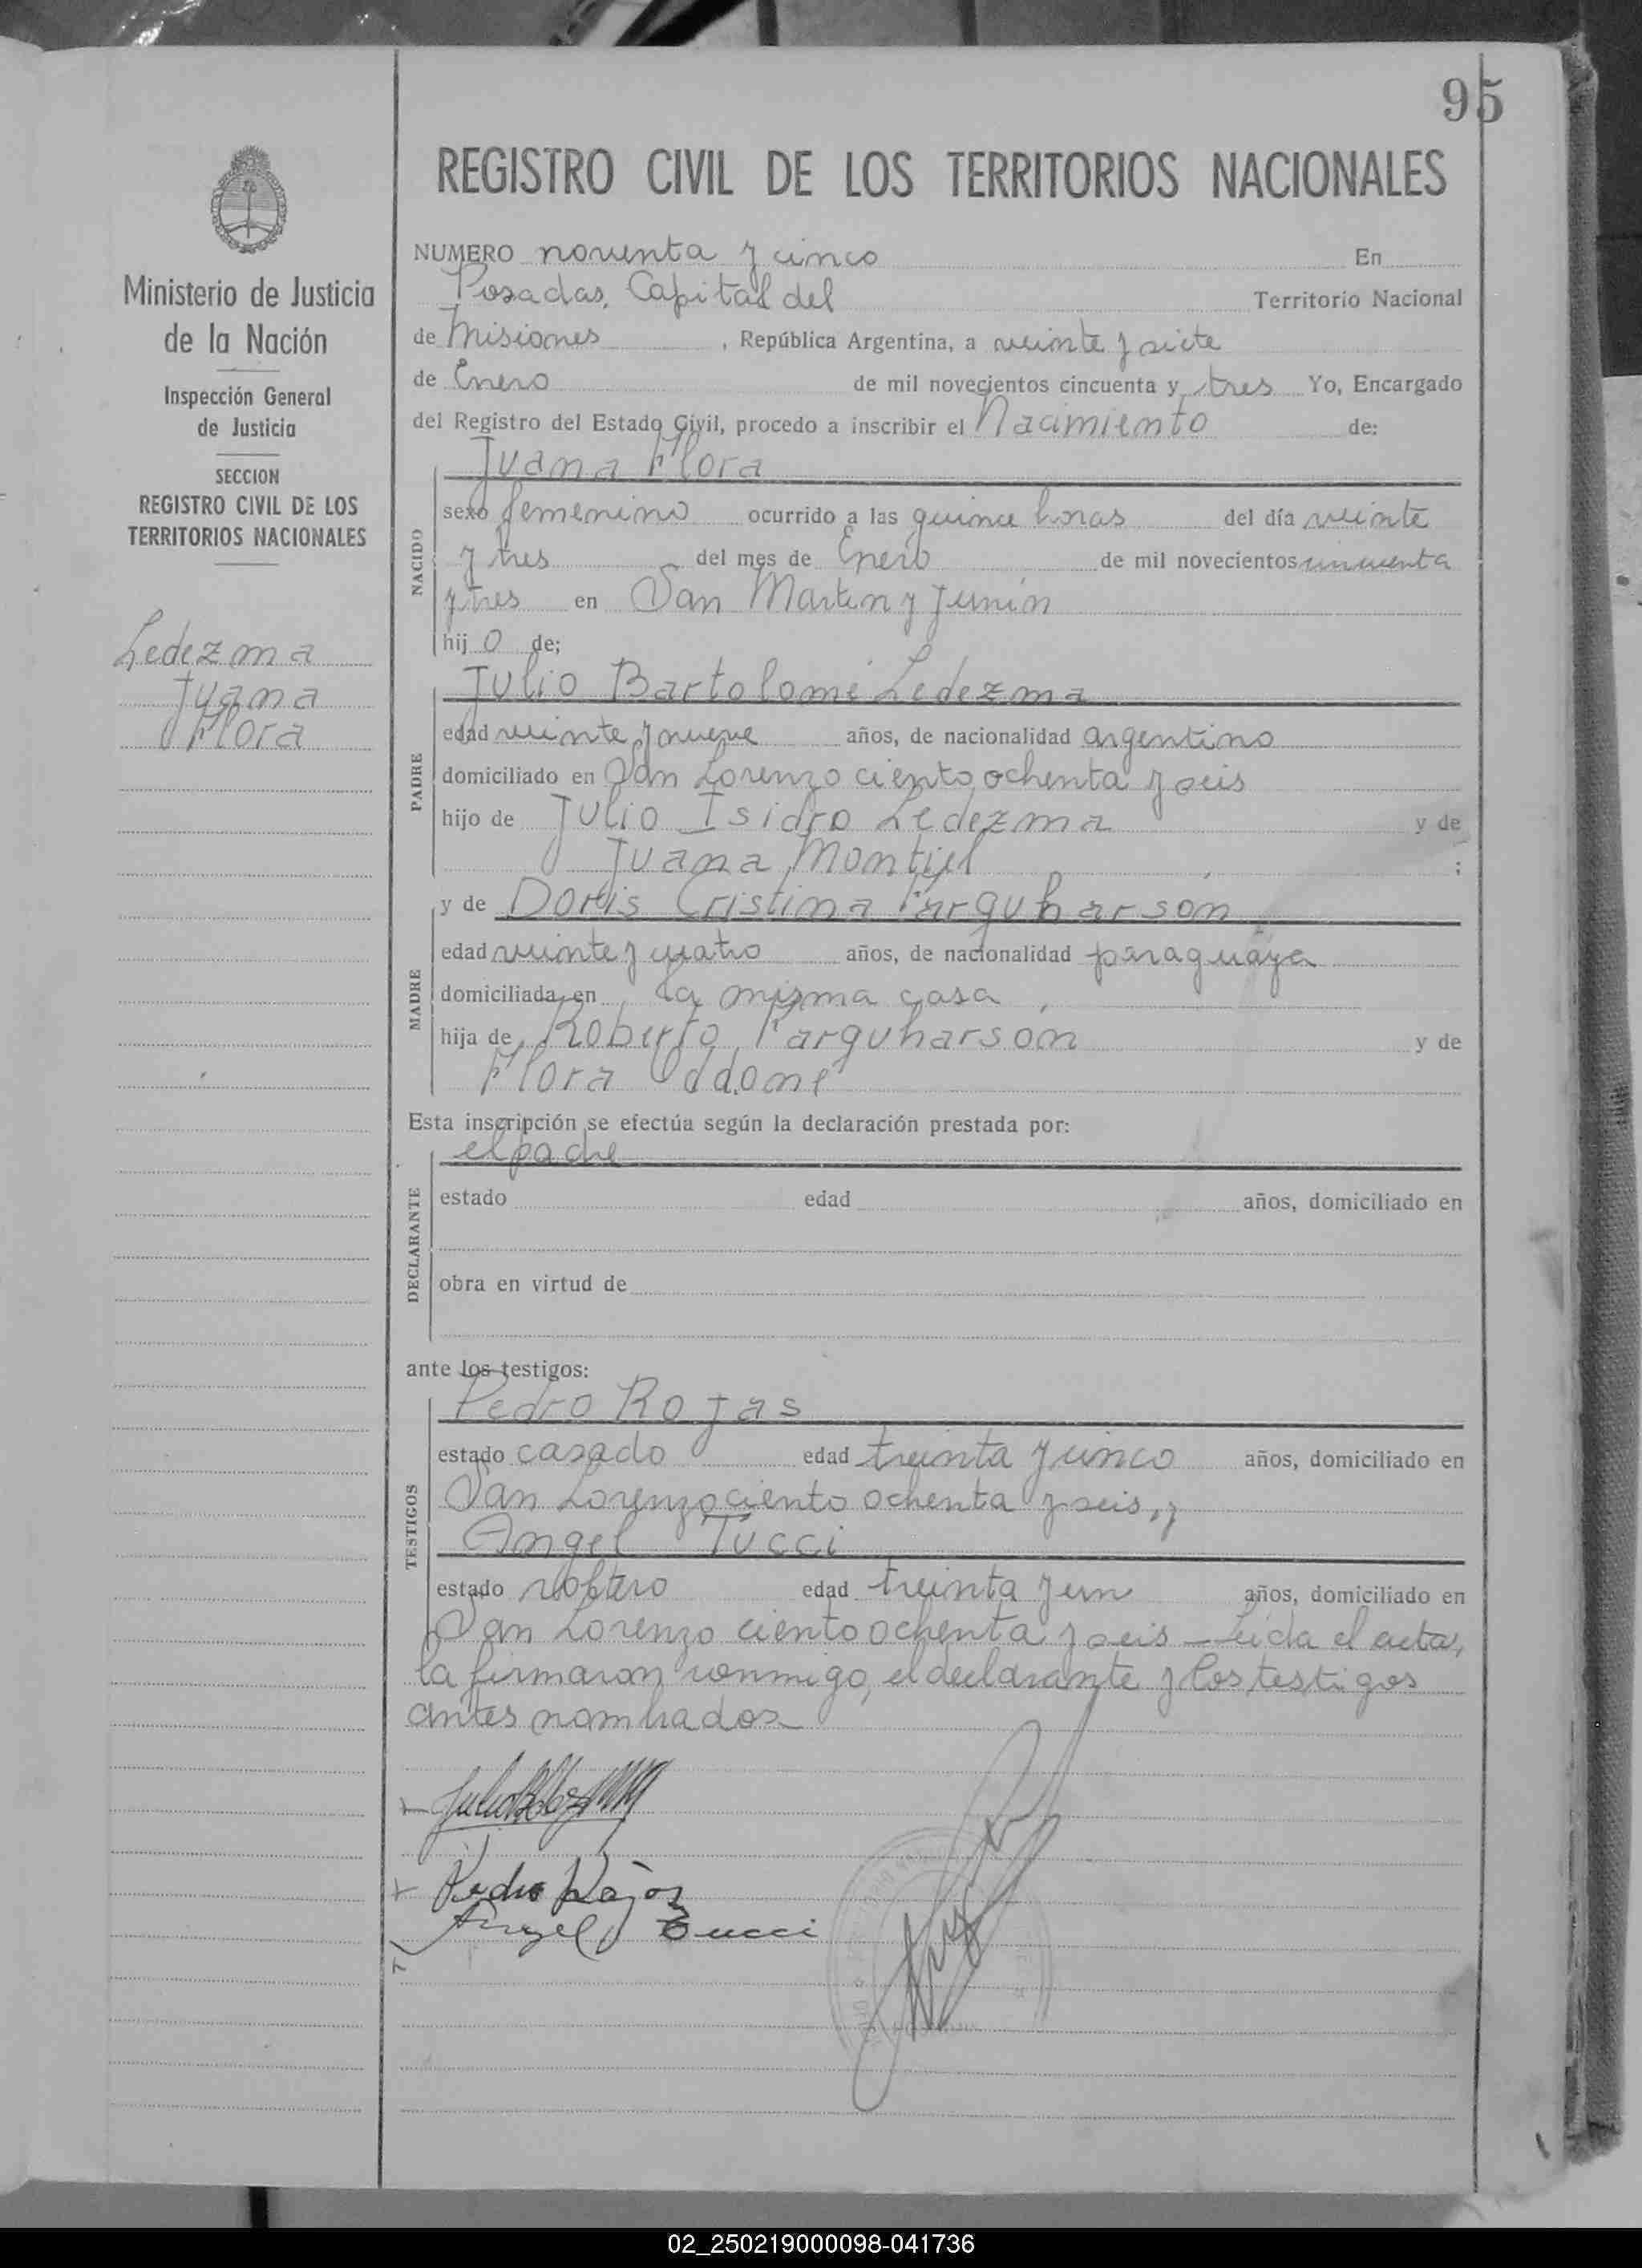 95
REGISTRO CIVIL DE LOS TERRITORIOS NACIONALES
Ministerio de Justicia
de la Nación
Inspección General
de Justicia
SECCION
REGISTRO CIVIL DE LOS
TERRITORIOS NACIONALES
Ledezma
Juana
Flora
NUMERO noventa y cinco En
Posadas, Capital del Territorio Nacional
de Misiones, República Argentina, a veinte y siete
de Enero de mil novecientos cincuenta y tres Yo, Encargado
del Registro del Estado Civil, procedo a inscribir el Nacimiento de:
Juana Flora
NACIDO
sexo femenino ocurrido a las quince horas del día veinte
y tres del mes de Enero de mil novecientos cincuenta
y tres en San Martin y Junin
hij o de;
Julio Bartolomé Ledezma
PADRE
edad veinte y nueve años, de nacionalidad argentino
domiciliado en San Lorenzo ciento ochenta y seis
hijo de Julio Isidro Ledezma y de
Juana Montiel ;
y de Doris Cristina Farquharson
MADRE
edad veinte y cuatro años, de nacionalidad paraguaya
domiciliada en la misma casa,
hija de Roberto Farquharson y de
Flora Oddone
Esta inscripción se efectúa según la declaración prestada por:
el padre
DECLARANTE
estado edad años, domiciliado en
obra en virtud de
ante los testigos:
Pedro Rojas
TESTIGOS
estado casado edad treinta y cinco años, domiciliado en
San Lorenzo ciento ochenta y seis, y
Angel Tucci
estado soltero edad treinta y un años, domiciliado en
San Lorenzo ciento ochenta y seis - Leida el acta,
la firmaron conmigo, el declarante y los testigos
antes nombrados
Pedro Rojas
Angel Tucci
02_250219000098-041736